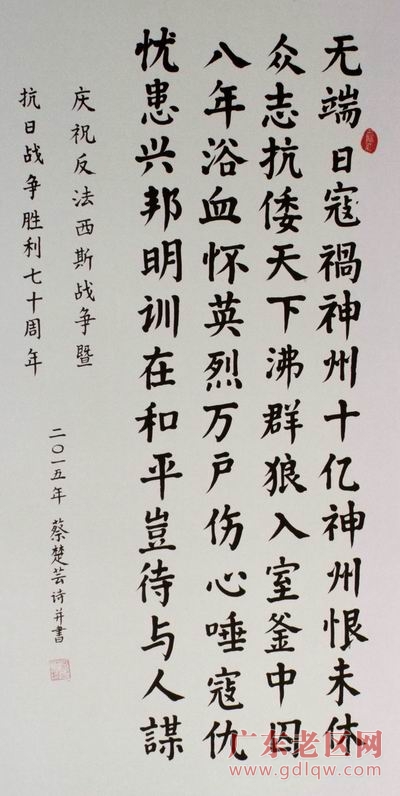 无端日寇禍神州十亿神州恨未休
众志抗倭天下沸群狼入室釜中囚
八年浴血怀英烈万户伤心唾寇仇
忧患兴邦明训在和平豈待与人謀
庆祝反法西斯战争暨
抗日战争胜利七十周年
二〇一五年 蔡楚芸诗并書
广东老区网
www.gdlqw.com